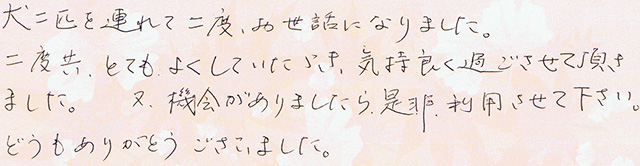 犬二匹を連れて二度、お世話になりました。
二度共、とても、よくしていただき、気持良く過ごさせて頂き
ました。 又、機会がありましたら、是非、利用させて下さい。
どうもありがとうございました。